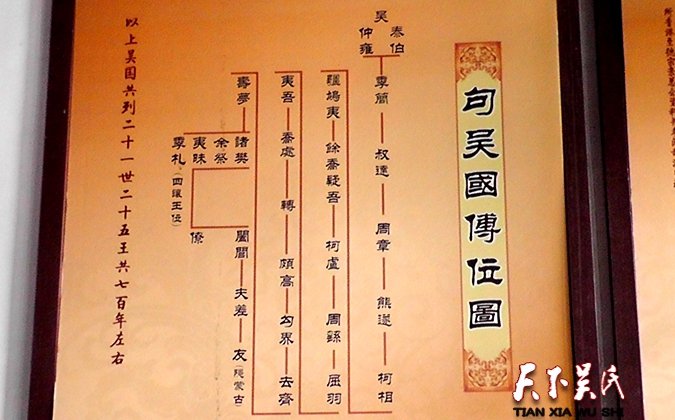 句吳國傳位圖
吳
泰伯
仲雍
季簡 叔達 周章 熊遂 柯相
彊鳩夷 餘喬疑吾 柯盧 周繇 屈羽
夷吾 禽處 轉 頗高 勾界 去齊
壽夢
諸樊
余祭
夷昧
季札(四讓王位)
闔閭 夫差 友(隱蒙古)
僚
以上吴国共列二十一世二十五王共七百年左右
天下吴氏
TIAN XIA WU SHI